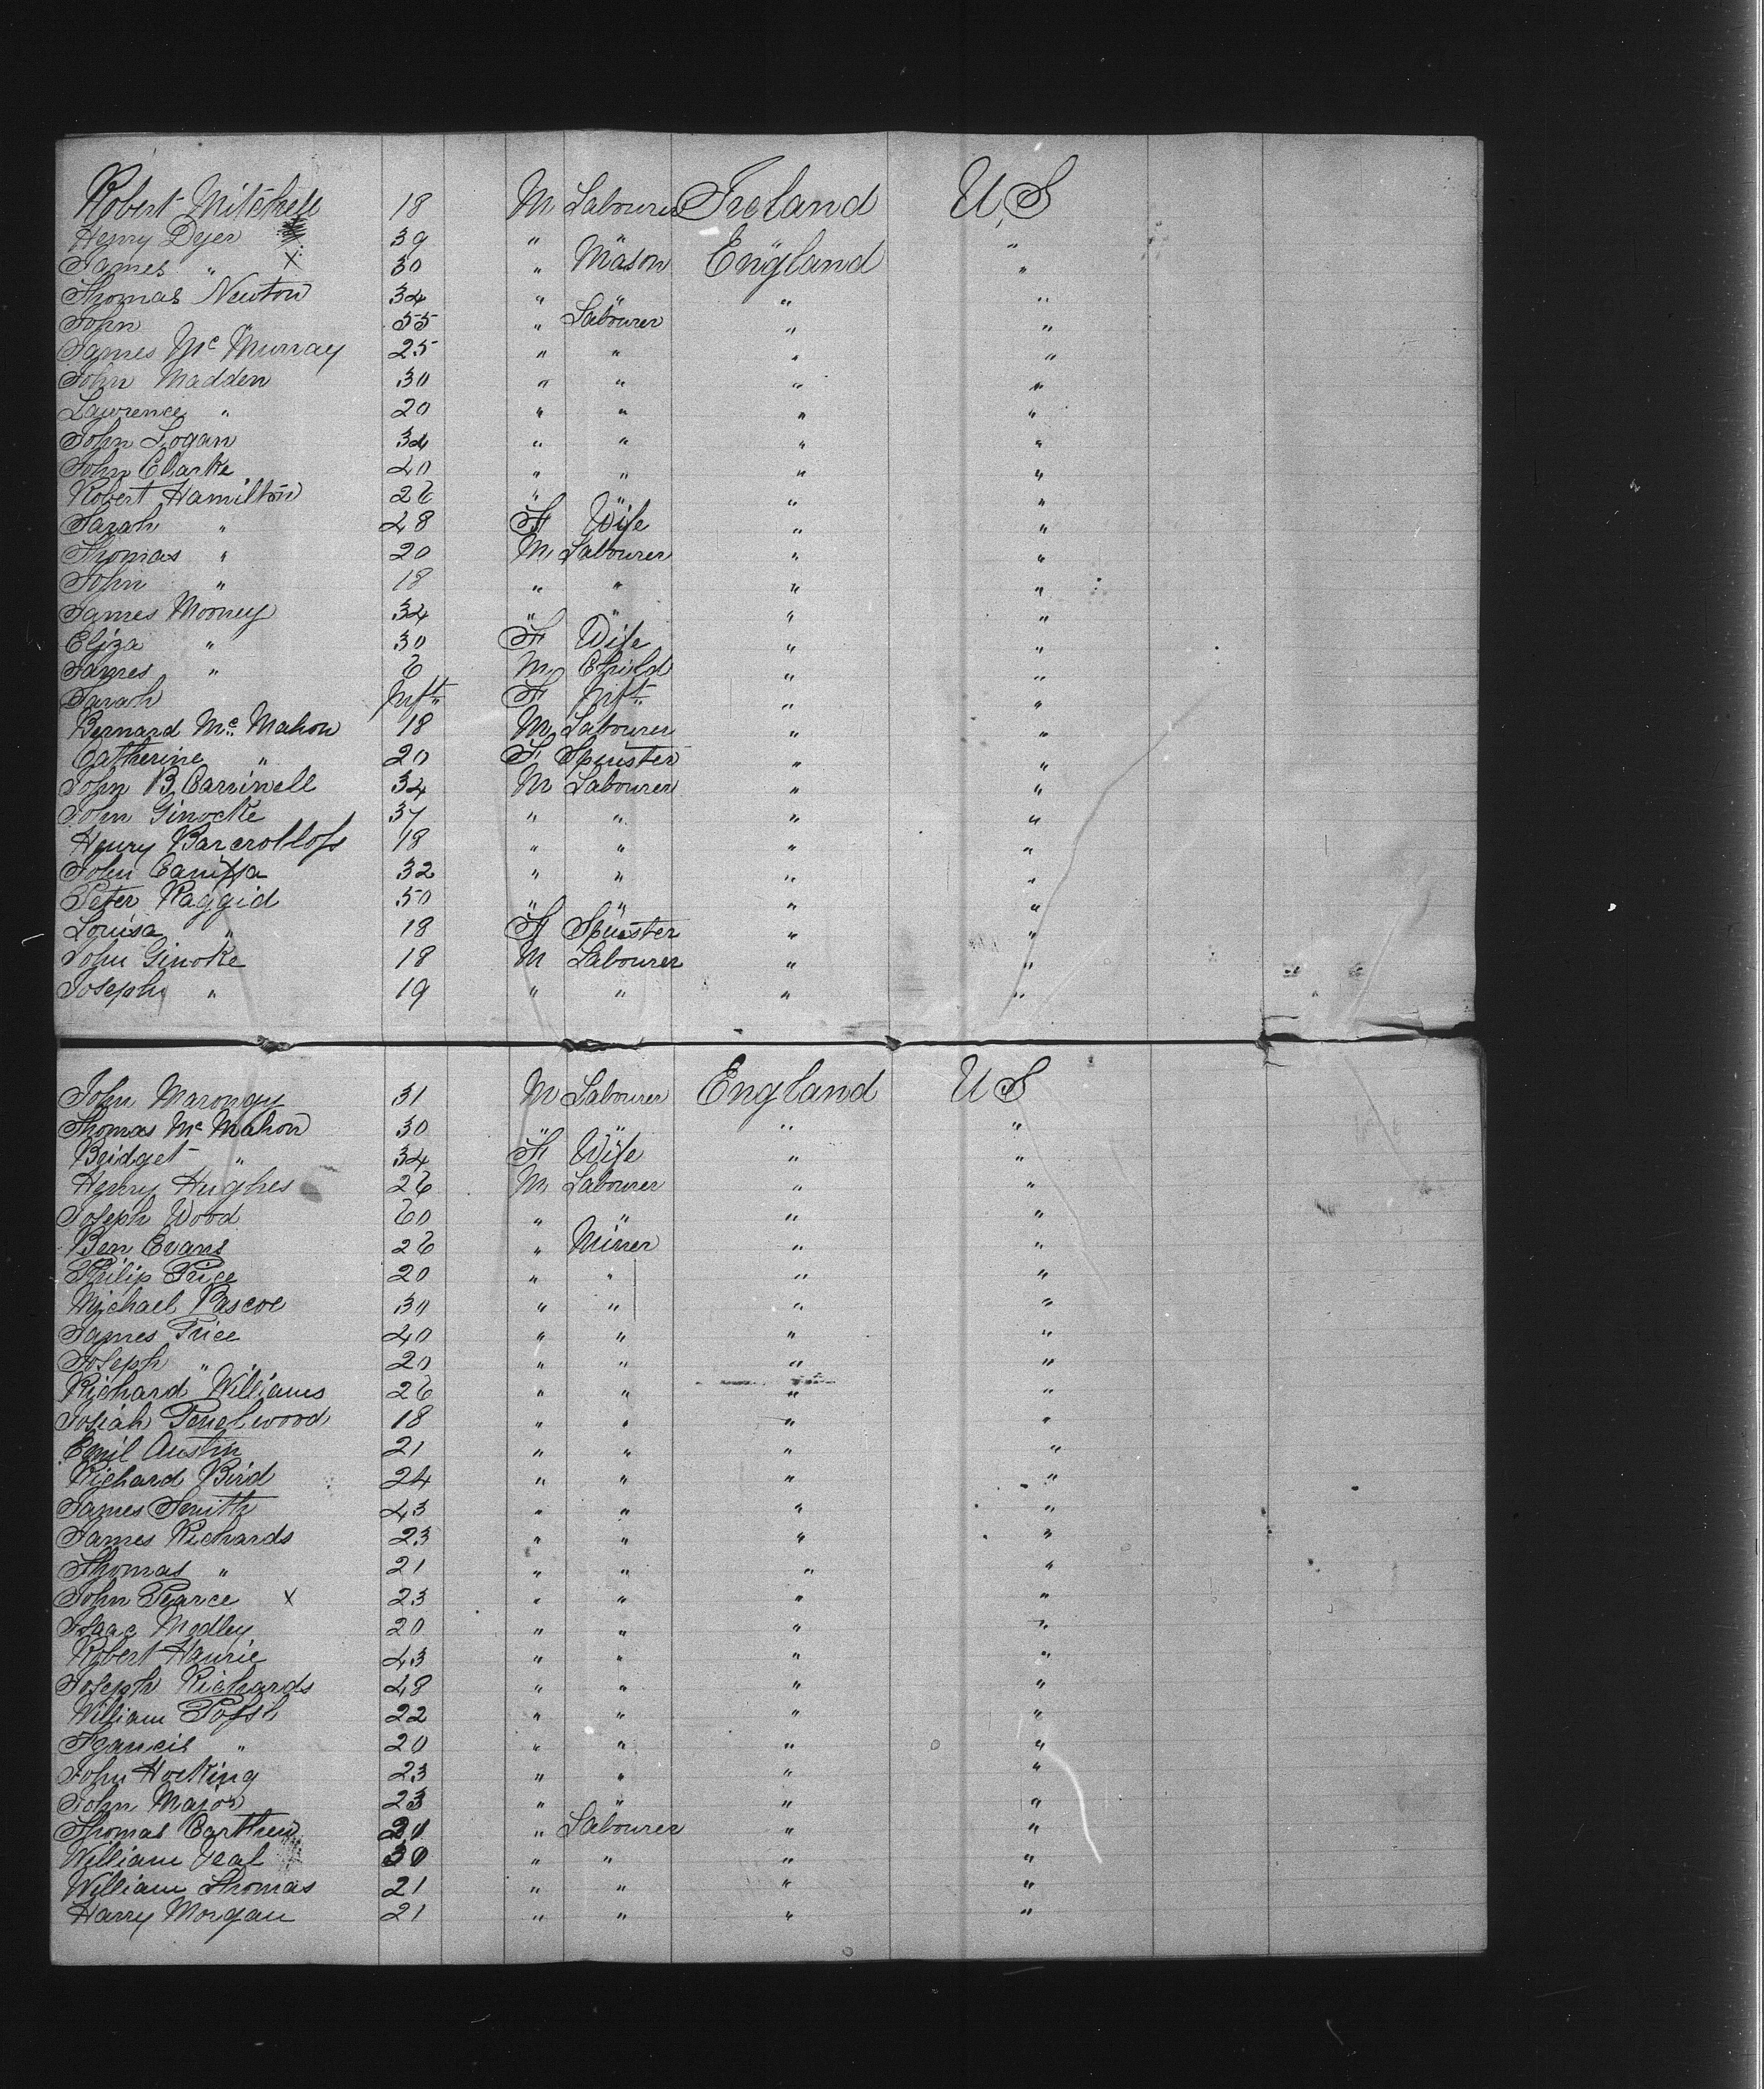 Robert Mitchell 18 M Labourer Ireland U S
Henry Dyer 39 " " " "
James " X 30 " Mason England "
Thomas Newton 34 " " " "
John 55 " Labourer " "
James Mc Murray 25 " " " "
John Madden 30 " " " "
Lawrence " 20 " " " "
John Logan 34 " " " "
John Clarke 40 " " " "
Robert Hamilton 26 " " " "
Sarah " 28 F Wife " "
Thomas " 20 M Labourer " "
John " 18 " " " "
James Mooney 34 " " " "
Eliza " 30 F Wife " "
James " 6 M Child " "
Sarah Inft F Inft " "
Bernard Mc Mahon 18 M Labourer " "
Catherine " 20 F Spinster " "
John B. 34 M Labourer " "
John Ginocke 37 " " " "
Henry 18 " " " "
John 32 " " " "
Peter Raggid 50 " " " "
Louisa " 18 F Spinster " "
John Ginoke 18 M Labourer " "
Joseph " 19 " " " "
John 31 M Labourer England U S
Thomas Mc Mahon 30 " " " "
Bridget " 34 F Wife " "
Henry Hughes 26 M Labourer " "
Joseph Wood 60 " " " "
Ben Evans 26 " Miner " "
Philip Price 20 " " " "
Michael Pascoe 30 " " " "
James Price 40 " " " "
Joseph " 20 " " " "
Richard Williams 26 " " " "
Josiah 18 " " " "
Emil Austin 21 " " " "
Richard Bird 24 " " " "
James Smith 43 " " " "
James Richards 23 " " " "
Thomas " 21 " " " "
John Pearce X 23 " " " "
Isaac Medley 20 " " " "
Robert 43 " " " "
Joseph Richards 48 " " " "
William 22 " " " "
Francis " 20 " " " "
John Hocking 23 " " " "
John Major 23 " " " "
Thomas Carthew 21 " Labourer " "
William Veal 30 " " " "
William Thomas 21 " " " "
Harry Morgan 21 " " " "